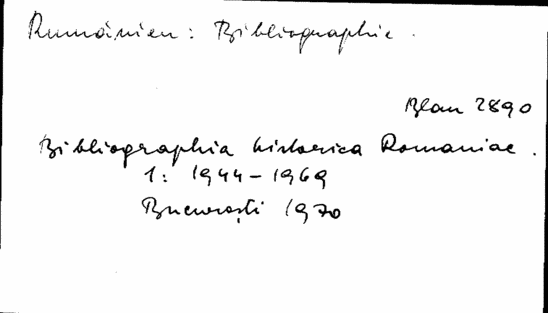 Rumänien: Bibliographie.
Blau 2890
Bibliographia historica Romaniae.
1: 1944-1969
București 1970